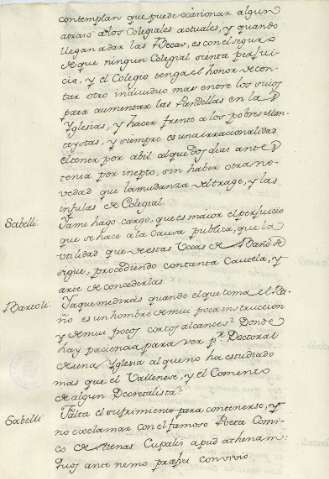 contemplan que puede ocasionar algun
atraso a los Colegiales actuales, y quando
llegan a dar las Becas, es con el rigor
de que ningun Colegial sienta perjui-
cia, y el Colegio tenga el honor de con-
tar otro individuo mas entre los suios
para aumentar las Pandillas en la
Yglesias, y hacer frente a los pobres Man-
teystas, y siempre es una irracionalidad
el coner por abil al que dos dias antes
tenia por inepto, sin haber otra no-
vedad que la mudanza del trage, y las
infulas de Colegial.
Sabelli. Ya me hago cargo, que es maior el perjuicio
que se hace a la Causa publica, que la
utilidad que de estas Becas de se
sigue, procediendo con tanta Cautela, y
arte de concederlas
Bartoli. Ya que medirás quando el que toma el Ba-
ño es un hombre de mui poca instruccion
y de mui pocos cortos alcances? Donde
hay paciencia para ver pr. Doctoral
de una Yglesia al que no ha estudiado
mas que el Vallensis, y el Comento
de algun Decretalista?
Sabelli. Falta el sufrimiento para contenerse, y
no exclamar con el famoso Poeta Comi-
co de Atenas Eupolis apud athenam:
Huos ante nemo praefui convivio.